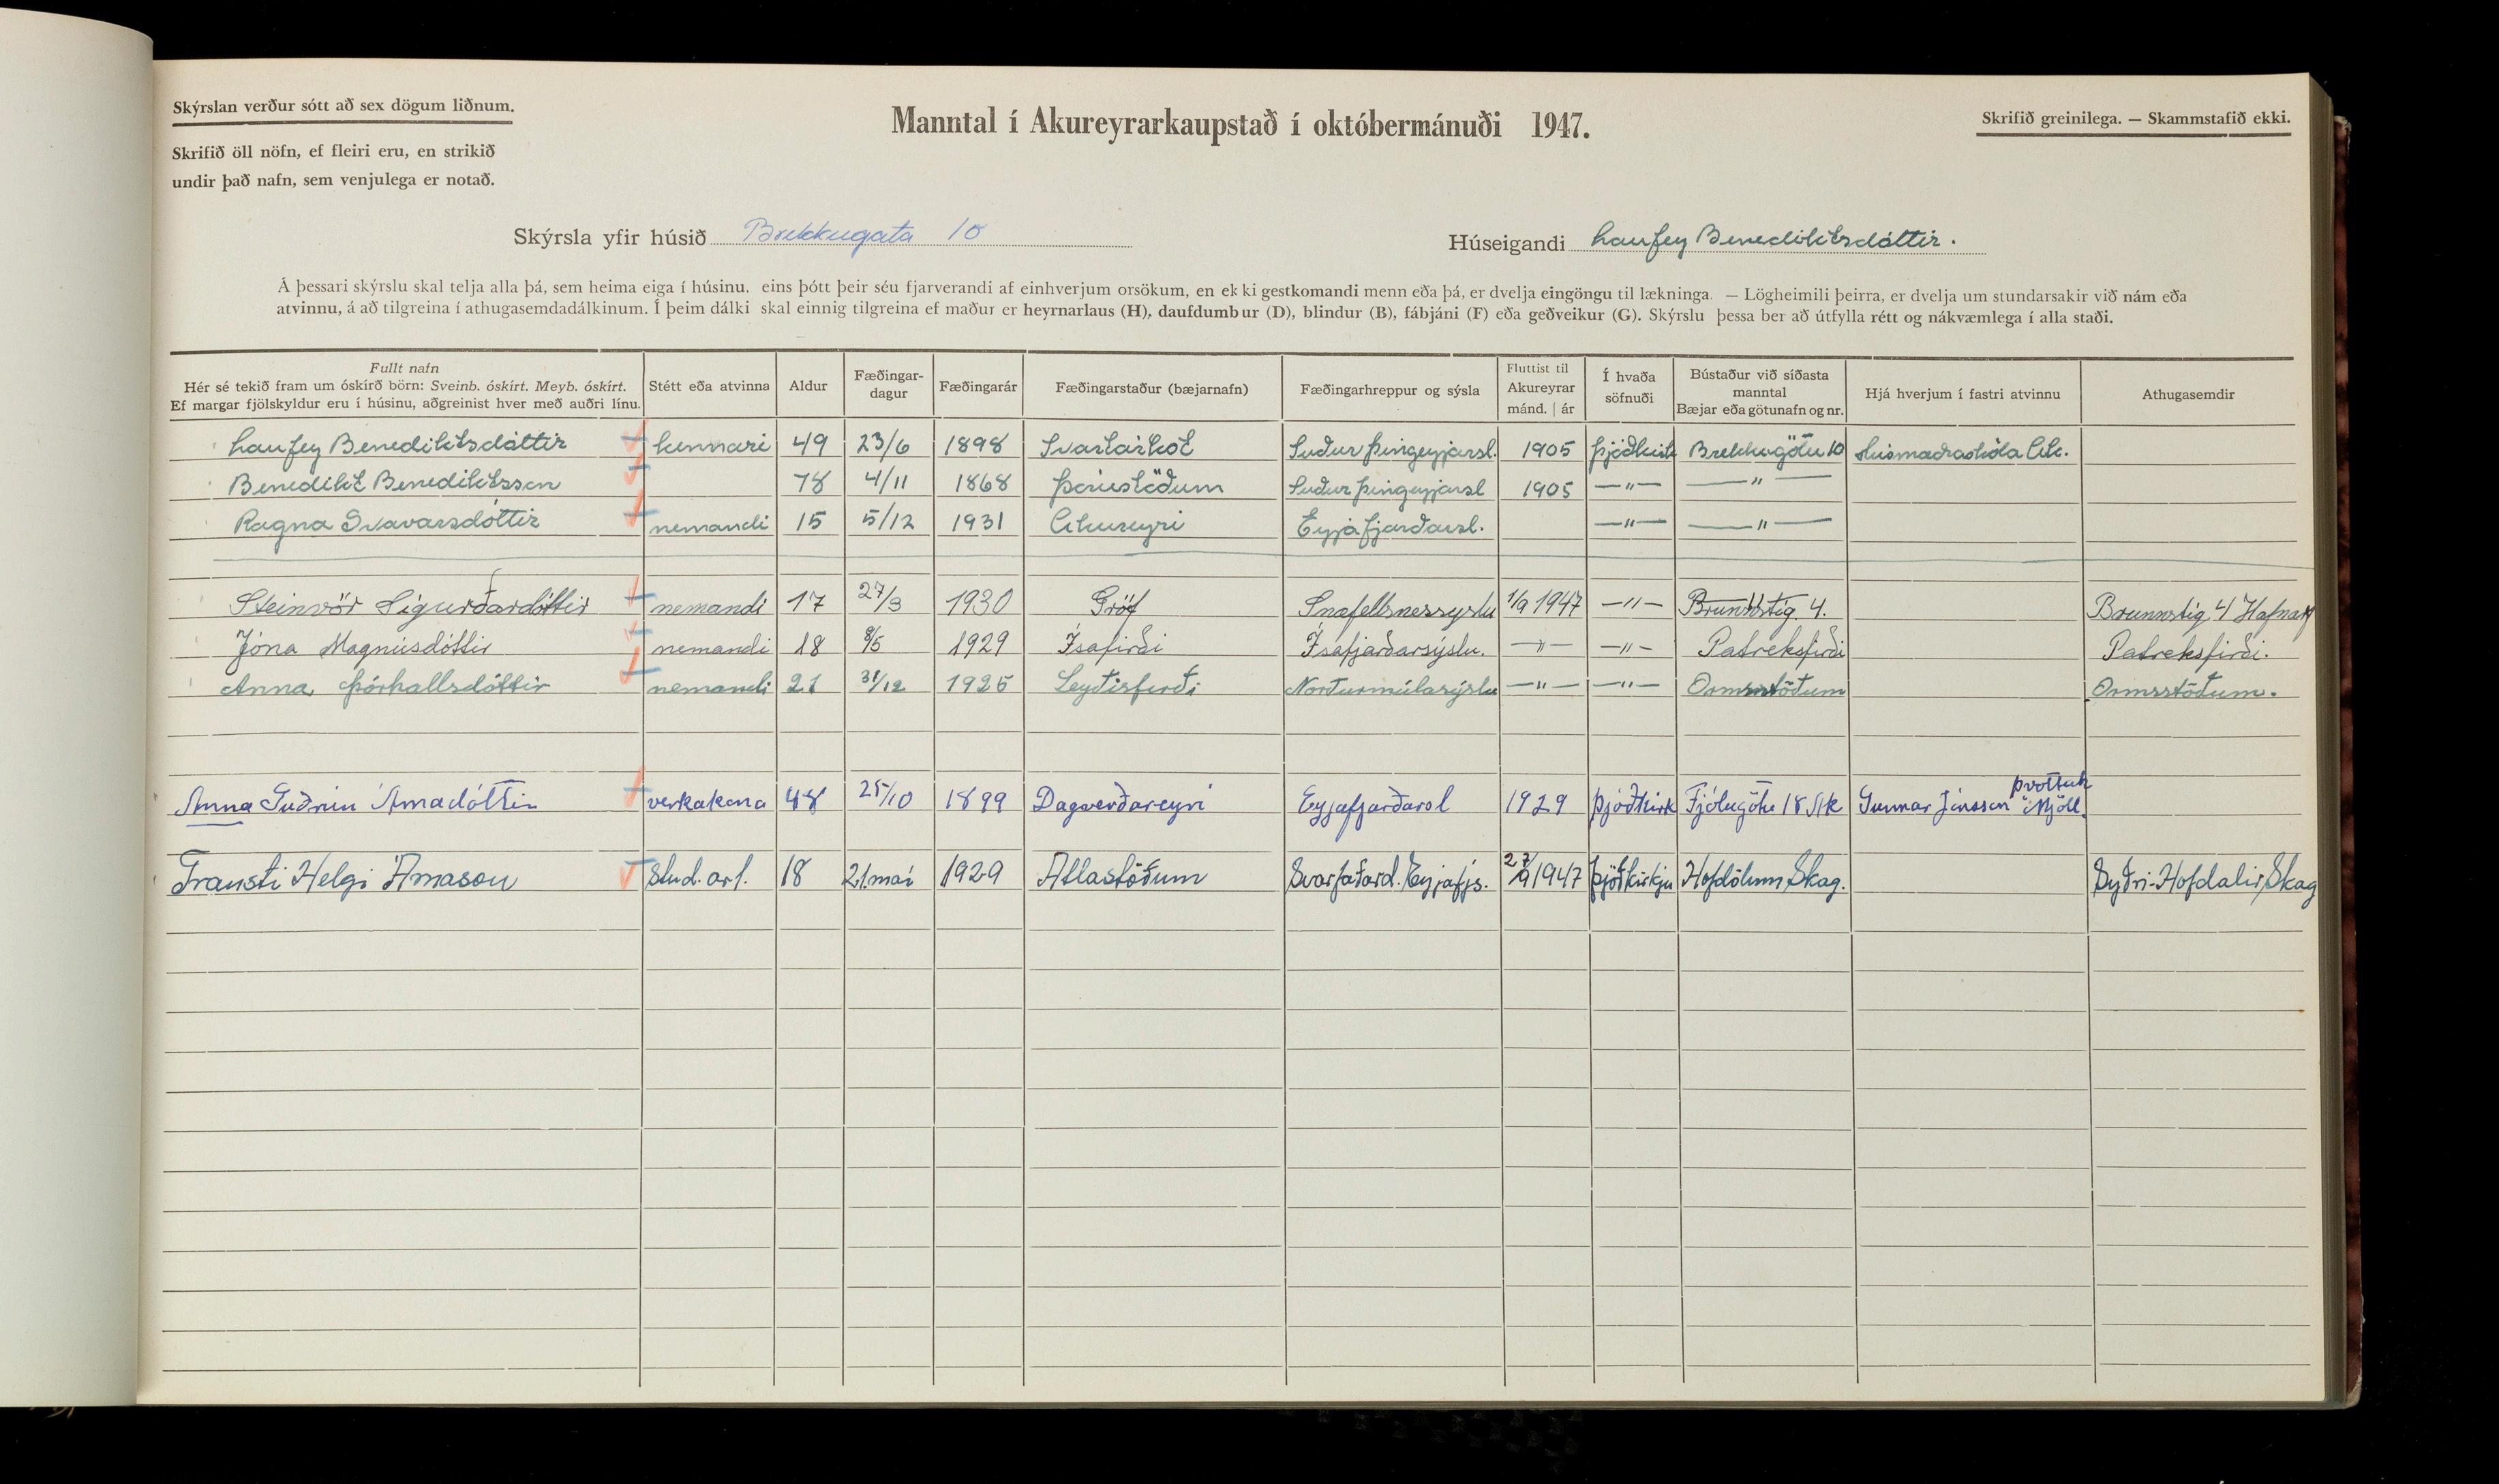 Skýrslan verður sótt að sex dögum liðnum.
Skrifið öll nöfn, ef fleiri eru, en strikið
undir það nafn, sem venjulega er notað.
Manntal í Akureyrarkaupstað í októbermánuði 1947.
Skrifið greinilega. — Skammstafið ekki.
Skýrsla yfir húsið Brekkugata 10
Húseigandi Laufey Benediktsdóttir.
Á þessari skýrslu skal telja alla þá, sem heima eiga í húsinu, eins þótt þeir séu fjarverandi af einhverjum orsökum, en ekki gestkomandi menn eða þá, er dvelja eingöngu til lækninga. — Lögheimili þeirra, er dvelja um stundarsakir við nám eða
atvinnu, á að tilgreina í athugasemdadálkinum. Í þeim dálki skal einnig tilgreina ef maður er heyrnarlaus (H), daufdumbur (D), blindur (B), fábjáni (F) eða geðveikur (G). Skýrslu þessa ber að útfylla rétt og nákvæmlega í alla staði.
Fullt nafn
Hér sé tekið fram um óskírð börn: Sveinb. óskírt. Meyb. óskírt.
Ef margar fjölskyldur eru í húsinu, aðgreinist hver með auðri línu.
Stétt eða atvinna
Aldur
Fæðingar-
dagur
Fæðingarár
Fæðingarstaður (bæjarnafn)
Fæðingarhreppur og sýsla
Fluttist til
Akureyrar
mánd. | ár
Í hvaða
söfnuði
Bústaður við síðasta
manntal
Bæjar eða götunafn og nr.
Hjá hverjum í fastri atvinnu
Athugasemdir
Laufey Benediktsdóttir kennari 49 23/6 1898 Svartárkot Suður Þingeyjarsl. 1905 Þjóðkirk Brekkugötu 10 Húsmæðraskóla Ak.
Benedikt Benediktsson 78 4/11 1868 Suður Þingeyjarsl 1905 —"— —"—
Ragna Svavarsdóttir nemandi 15 5/12 1931 Akureyri Eyjafjarðarsl. —"— —"—
Steinvör Sigurðardóttir nemandi 17 27/3 1930 Gröf Snæfellsnessýslu 1/9 1947 —"— Brunnstíg. 4. Brunnstíg 4 Hafnarf
Jóna Magnúsdóttir nemandi 18 8/5 1929 Ísafirði Ísafjarðarsýslu. —"— —"— Patreksfirði Patreksfirði.
Anna Þórhallsdóttir nemandi 21 31/12 1925 Seyðisfirði Norðurmúlasýslu —"— —"— Ormsstöðum Ormsstöðum.
Anna Guðrún Árnadóttir verkakona 48 25/10 1899 Dagverðareyri Eyjafjarðarsl 1929 Þjóðkirk Fjólugötu 18 Ak Gunnar Jónsson Þvottah
Mjöll.
Trausti Helgi Árnason stud. art. 18 21. maí 1929 Atlastöðum Svarfaðard. Eyjafjs. 27/9 1947 Þjóðkirkju Hofdölum Skag. Syðri-Hofdalir, Skag